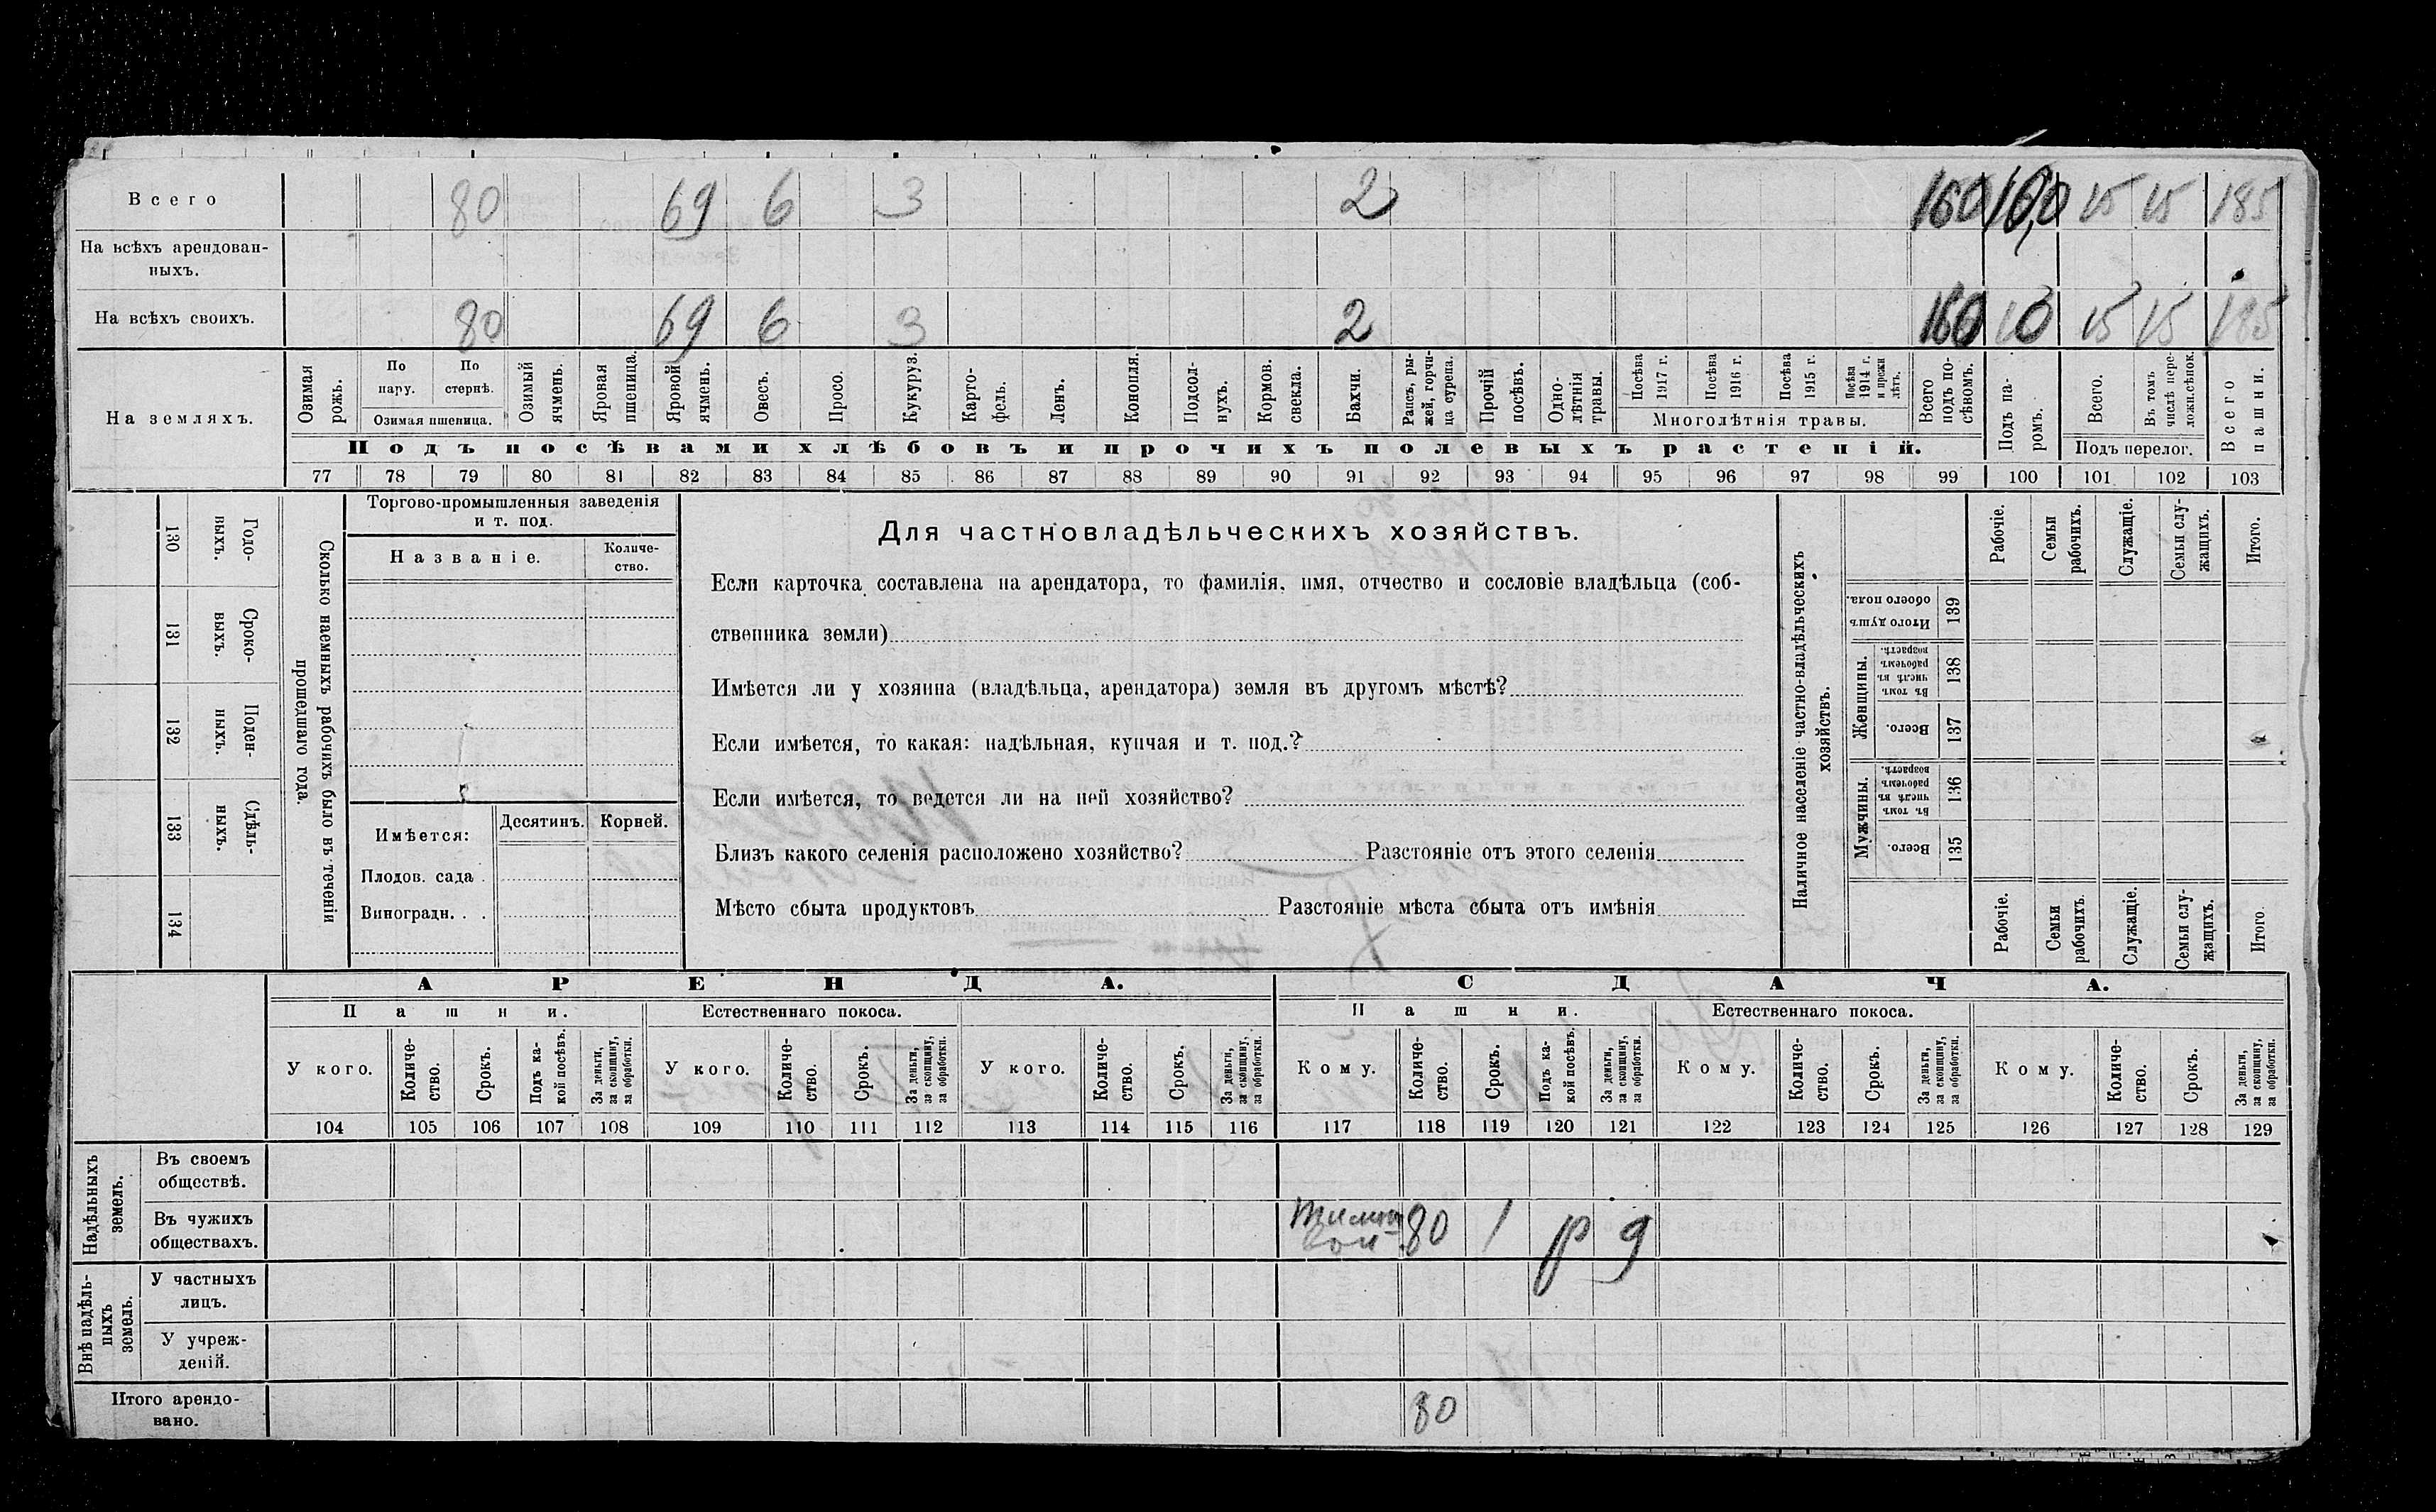 Всего 80 69 6 3 2 160 10,0 15 15 185
На всѣхъ арендован-
ныхъ.
На всѣхъ своихъ. 80 69 6 3 2 160 10 15 15 185
На земляхъ.
Озимая рожь.
По пару.
По стернѣ.
Озимая пшеница.
Озимый ячмень.
Яровая пшеница.
Яровой ячмень.
Овесъ.
Просо.
Кукуруз.
Карто-
фель.
Ленъ.
Конопля.
Подсол-
нухъ.
Кормов. свекла.
Бахчи.
Рапсъ, ры-
жей, горчи-
ца сурепа.
Прочій посѣвъ.
Одно-
лѣтнія травы.
Посѣва 1917 г.
Посѣва 1916 г.
Посѣва 1915 г.
Посѣва 1914 г. и прежн лѣтъ.
Многолѣтнія травы.
Всего подъ по-
сѣвомъ.
Подъ па-
ромъ.
Всего.
Въ томъ числѣ пере-
ложн. сѣнок.
Подъ перелог.
Всего пашни.
Подъ посѣвами хлѣбовъ и прочихъ полевыхъ растеній.
77 78 79 80 81 82 83 84 85 86 87 88 89 90 91 92 93 94 95 96 97 98 99 100 101 102 103
130 Годо-
выхъ.
131 Сроко-
выхъ.
132 Поден-
ныхъ.
133 Сдѣль-
ныхъ.
134
Сколько наемныхъ рабочихъ было въ теченіи
прошедшаго года.
Торгово-промышленныя заведенія
и т. под.
Названіе.
Количе-
ство.
Имѣется:
Десятинъ. Корней.
Плодов. сада .
Виноградн. . .
Для частновладѣльческихъ хозяйствъ.
Если карточка составлена на арендатора, то фамилія, имя, отчество и сословіе владѣльца (соб-
ственника земли)
Имѣется ли у хозяина (владѣльца, арендатора) земля въ другомъ мѣстѣ?
Если имѣется, то какая: надѣльная, купчая и т. под.?
Если имѣется, то ведется ли на ней хозяйство?
Близъ какого селенія расположено хозяйство? Разстояніе отъ этого селенія
Мѣсто сбыта продуктовъ Разстояніе мѣста сбыта отъ имѣнія
Наличное населеніе частно-владѣльческихъ
хозяйствъ.
Рабочіе.
Семьи рабочихъ.
Служащіе.
Семьи слу-
жащихъ.
Итого.
Итого душъ обоего пола. 139
Женщины.
Въ томъ числѣ въ рабочемъ возрастѣ. 138
Всего. 137
Мужчины.
Въ томъ числѣ въ рабочемъ возрастѣ. 136
Всего. 135
Рабочіе.
Семьи рабочихъ.
Служащіе.
Семьи слу-
жащихъ.
Итого.
АРЕНДА. СДАЧА.
Пашни. Естественнаго покоса. Пашни. Естественнаго покоса.
У кого.
Количе-
ство.
Срокъ.
Подъ ка-
кой посѣвъ.
За деньги, за скопщину, за обработки.
У кого.
Количе-
ство.
Срокъ.
За деньги, за скопщину, за обработки.
У кого.
Количе-
ство.
Срокъ.
За деньги, за скопщину, за обработки.
Кому.
Количе-
ство.
Срокъ.
Подъ ка-
кой посѣвъ.
За деньги, за скопщину, за обработки.
Кому.
Количе-
ство.
Срокъ.
За деньги, за скопщину, за обработки.
Кому.
Количе-
ство.
Срокъ.
За деньги, за скопщину, за обработки.
104 105 106 107 108 109 110 111 112 113 114 115 116 117 118 119 120 121 122 123 124 125 126 127 128 129
Надѣльныхъ земель.
Въ своемъ
обществѣ.
Въ чужихъ
обществахъ.
80 1 р д
Внѣ надѣль-
ныхъ земель.
У частныхъ
лицъ.
У учреж-
деній.
Итого арендо-
вано.
80